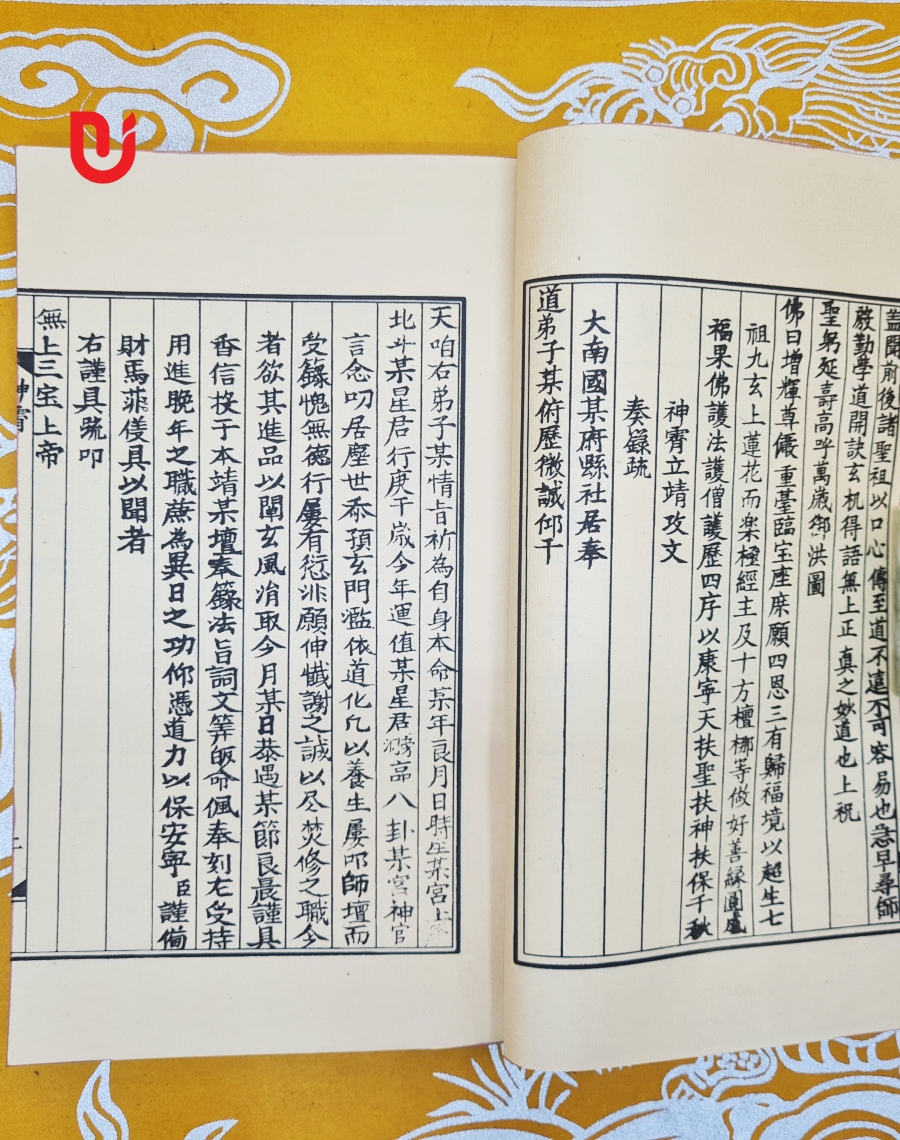 蓋聞前後諸聖祖以口心傳至道不遠不可容易也急早尋師
啟勤學道開訣玄机得語無上正真之妙道也上祝
聖躬延壽高呼萬歲洪圖
佛日增輝尊儼重臺臨宝座庶願四恩三有歸福境以超生七
祖九玄上蓮花而楽極經主及十方檀那等做好善緣圓
福果佛護法護僧護歷四序以康寧天扶聖扶神扶保千秋
神霄立靖攻文
奏籙疏
大南國某府縣社居奉
道弟子某俯歷微誠仰干
天咱右弟子某情旨祈為自身本命某年良月日時生某宮上
北斗某星居行庚干歲今年運值某星君八卦某宮神官
言念叨居塵世忝預玄門濫依道化凡以養生屢叩師壇而
受籙愧無德行屢有愆非願伸懺謝之誠以尽焚修之職今
者欲其進品以闡玄風涓取今月某日恭遇某節良晨謹具
香信投于本靖某壇奉籙法旨詞文筭皈命佩奉刻左受持
用進晚年之職蔗為異日之功仰憑道力以保安寧臣謹備
財馬菲儀具以聞者
右謹具疏叩
無上三宝上帝
神霄